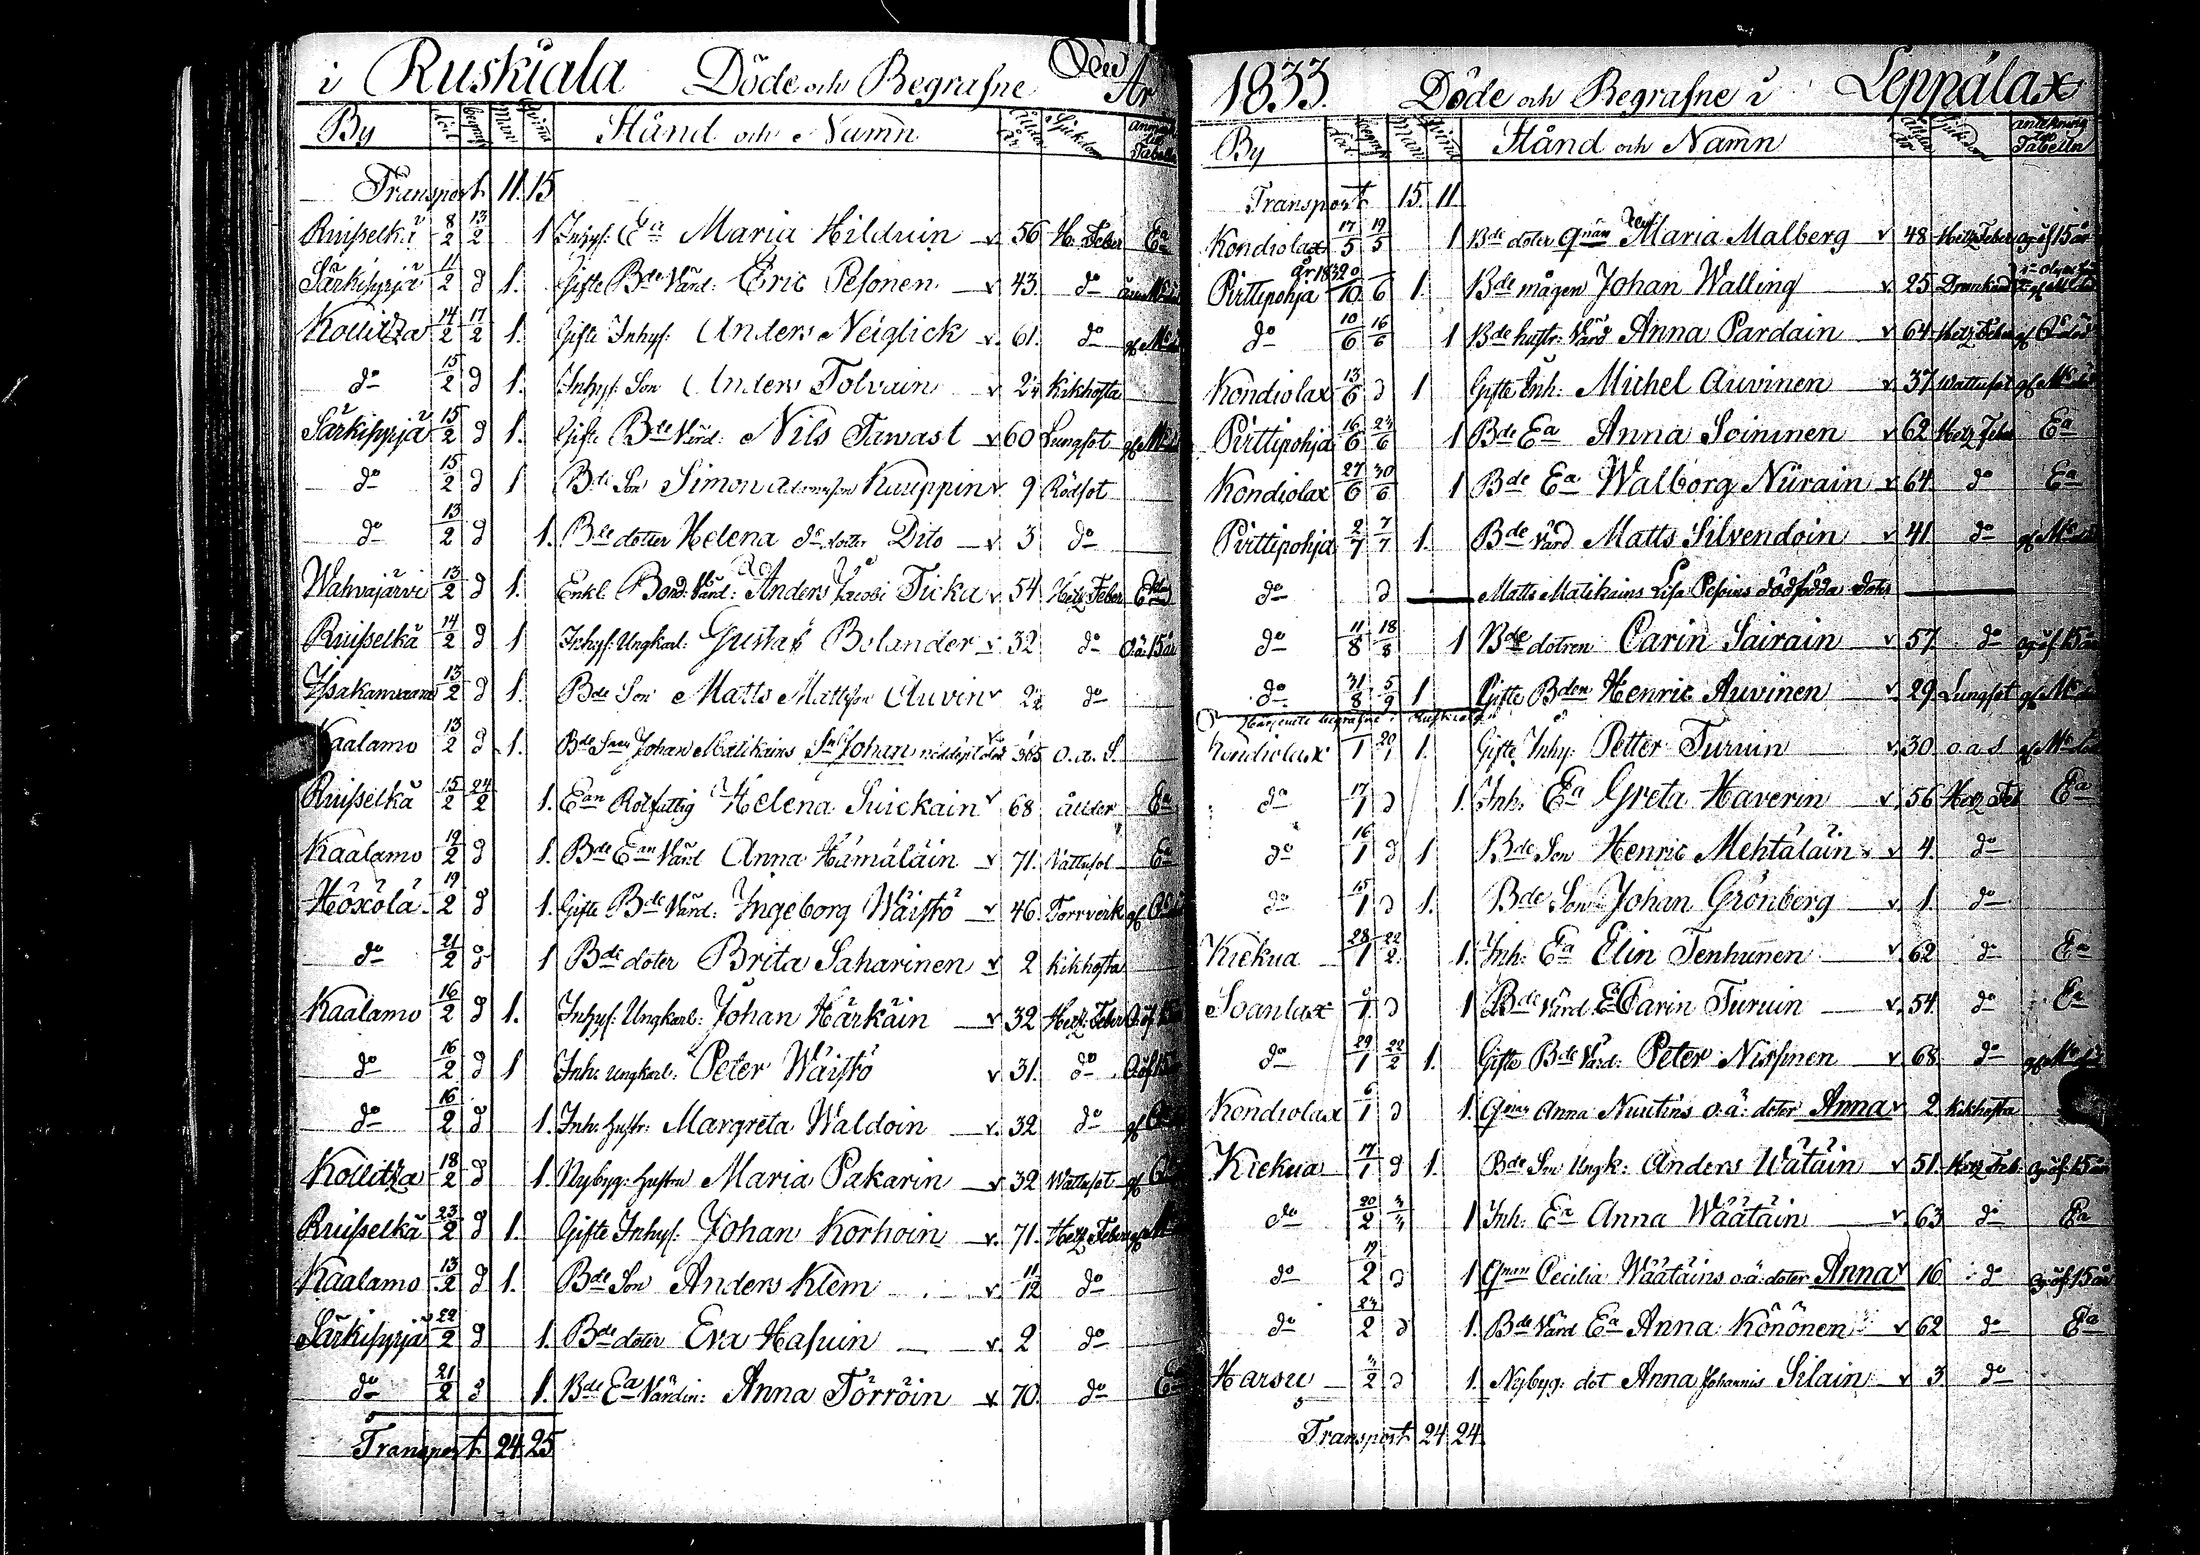 i Ruskiala Döde och Begrafne År
By död begrafn Man Qvins Stånd och Namn Ålder år Sjukdom Tabelln
Transport 11. 15
Ruisselkä 8/2 13/2 1 Inhys: Ea Maria Hilduin v. 56 H. Feber Ea
Särkisyrjä 11/2 d 1. Gifte Bde Värd: Eric Pesonen v. 43. do
Kollitza 14/2 17/2 1. Gifte Inhys: Anders Neiglick v. 61. do
do 15/2 d 1. Inhys: Son Anders Tolvain v. Kikhosta
Särkisyrjä 15/2 d 1. Gifte Bde Värd: Nils Tawast v. 60 Lungsot
do 15/2 d 1 Bde Son Simon Kauppin v. 9 Rödsot
do 13/2 d 1. Bde dotter Helena do dotter Dito v. 3 do
Wahvajärvi 13/2 d 1. Enkl. Bond: Värd: Anders Jacobi Ticka v. 54. Hetz Feber
Ruisselkä 14/2 d 1 Inhys: Ungkarl: Gustaf Bolander v. 32 do
13/2 d 1. Bde Son Matts Mattsson Auvin v do
Kaalamo 13/2 d 1. Bde Johan Matikains Johan o. a. S.
Ruisselkä 15/2 24/2 1. Ean Rotfattig Helena Suickain v 68 ållder Ea
Kaalamo 19/2 d 1. Bde Ean Värd Anna Hämäläin v 71. Vattusot Ea
Höxölä 19/2 d 1. Gifte Bde Värd: Ingeborg Wäistö v 46. Torrverk
do 21/2 d 1 Bde doter Brita Saharinen v 2 kikhosta
Kaalamo 16/2 d 1. Inhys: Ungkarl: Johan Härkäin v 32 Hetz Feber
do 16/2 d 1 Inh: ungkarl: Peter Wäistö v 31. do
do 16/2 d 1. Inh: hustr: Margreta Waldoin v. 32 do
Kollitza 18/2 d 1. Nybyg: hustru Maria Pakarin v. 32 Wattusot
Ruisselkä 23/2 d 1. Gifte Inhys: Johan Korhoin v. 71. Hetz Feber
Kaalamo 13/2 d 1. Bde Son Anders Klem v. 11/12 do
Särkisyrjä 22/2 d 1. Bde doter Eva Hasuin v. 2 do
do 21/2 d 1. Bde Ea Värdin: Anna Törröin v. 70. do Ea
Transport 24. 25
1833. Döde och Begrafne i Leppälax
By död begrafn Man Qvins Stånd och Namn Ålder år Sjukdom anteckning Tabelln
Transport 15. 11
Kondiolax 17/5 19/5 1 Bde doter Qnan Maria Malberg v 48 Hetz Feber ogift 15 år
Pirttipohja 1. Bde mågen Johan Walling v. 25
do 10/6 16/6 1 Bde hustr: Värd Anna Pardain v 64 Hetz Feber
Kondiolax 13/6 d 1 Gifte Inh: Michel Auvinen v. 37 Wattusot
Pirttipohja 16/6 1 Bde Ea Anna Soininen v 62 Hetz Feb Ea
Kondiolax 27/6 30/6 1 Bde Ea Walborg Nürain v 64 do Ea
Pirttipohja 2/7 7/7 1. Bde Värd Matts Silvendoin v 41 do
do d Matts Matikains Lisa Pesoins dödfödda doter
do 11/8 18/8 1 Bde dotren Carin Sairain v 57 do ogift 15 år
do 31/8 5/9 1 Gifte Bden Henric Auvinen v. 29 Lungsot
begrafne i Ruskiala
Kondiolax 1 20/1 1. Gifte Inhy: Petter Turuin v. 30 o a S
do 17/1 d 1. Inh: Ea Greta Haverin v. 56 Hetz Feb Ea
do 16/1 d 1 Bde Son Henric Mehtäläin v 4. do
do 15/1 d 1. Bde Son Johan Grönberg v. 1. do
Kiekua 28/1 22/2 1. Inh: Ea Elin Tenhunen v. 62 do Ea
Soanlax d 1 Bde Värd Ea Carin Turuin v. 54. do Ea
do 29/1 22/2 1. Gifte Bde Värd: Peter Nissinen v 68 do
Kondiolax 6/1 d 1. Qnan Anna Nuutins o.ä: doter Anna v 2 Kikhosta
Kiekua 17/1 d 1. Bde Son Ungk: Anders Wätäin v 51. Hetz Feb. ogäf: 15 år
do 20/2 1 Inh: Ea Anna Wäätäin v. 63 do Ea
do 19/2 d 1 Qnan Cecilia Wäätäins o.ä: doter Anna v 16 do ogäf: 15 år
do d 1. Bde Värd Ea Anna Könönen v 62 do Ea
Harsu d 1. Nybyg: dot Anna Johannis Silain v 3. do
Transport 24 24.